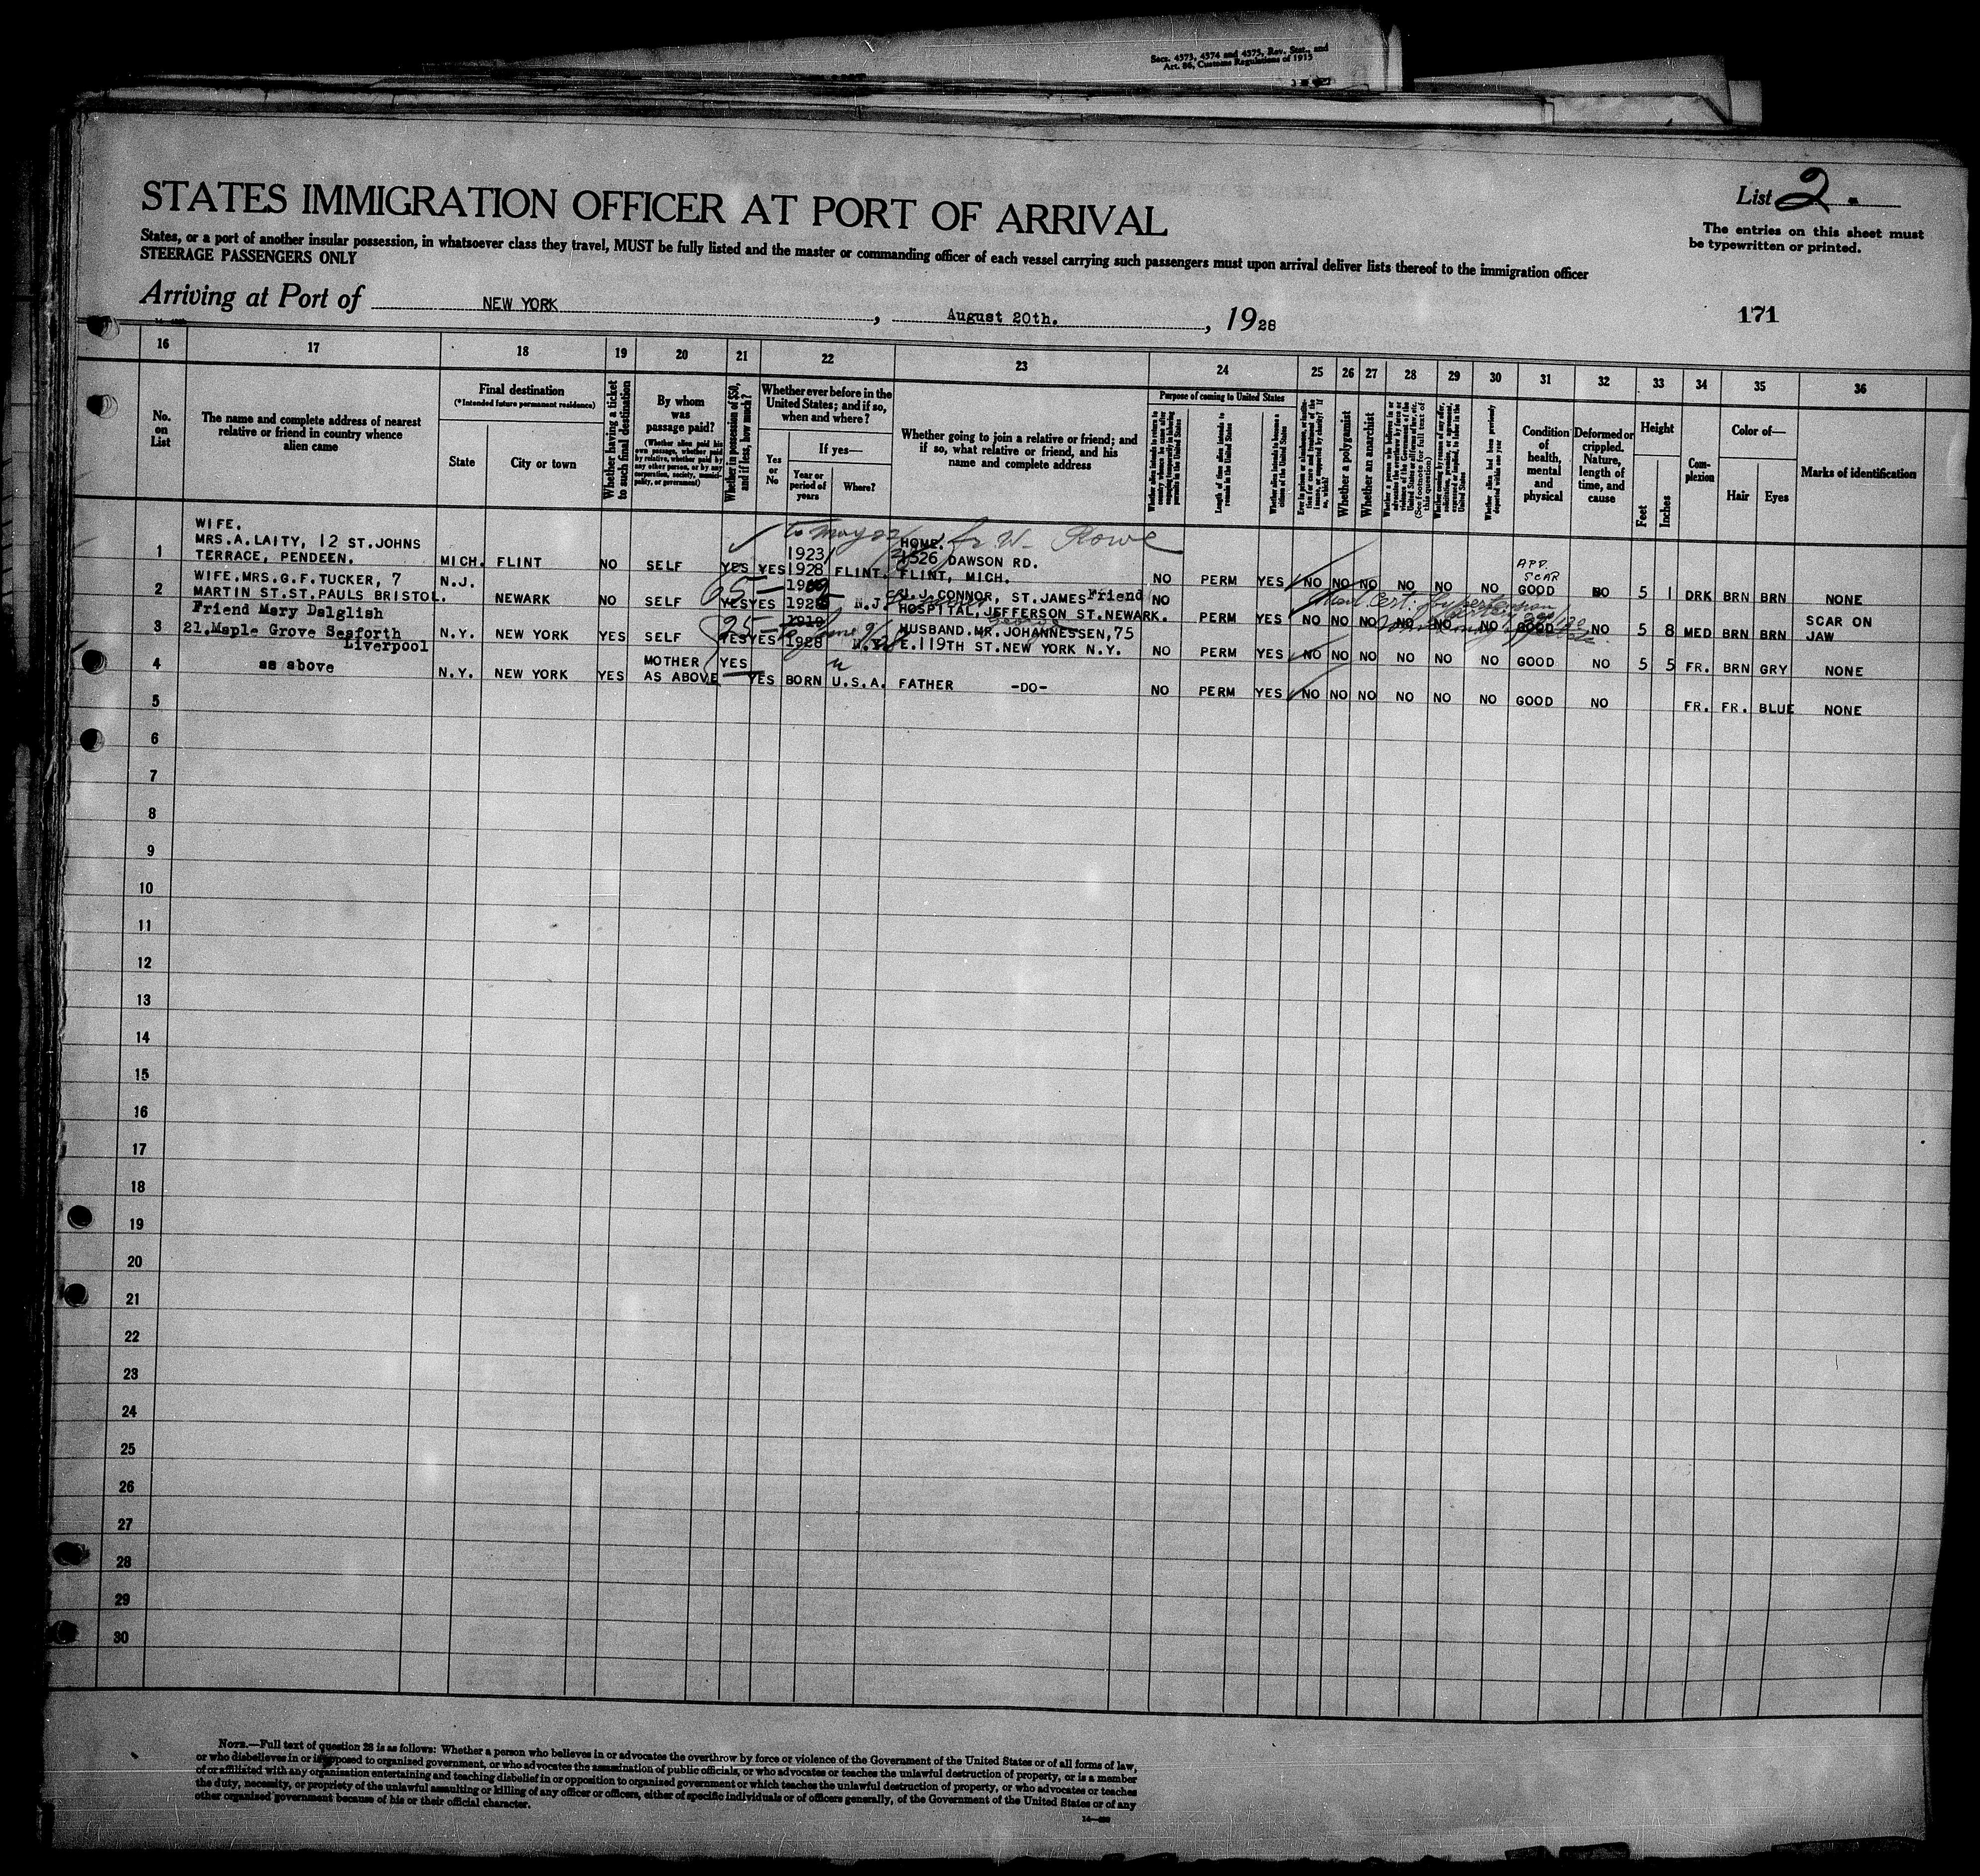 Secs. 4573, 4574 and 4575, Rev. Stat., and
Art. 86, Customs Regulations of 1915
STATES IMMIGRATION OFFICER AT PORT OF ARRIVAL
List 2.
The entries on this sheet must
be typewritten or printed.
States, or a port of another insular possession, in whatsoever class they travel, MUST be fully listed and the master or commanding officer of each vessel carrying such passengers must upon arrival deliver lists thereof to the immigration officer
STEERAGE PASSENGERS ONLY
Arriving at Port of NEW YORK, August 20th., 1928
171
16 17 18 19 20 21 22 23 24 25 26 27 28 29 30 31 32 33 34 35 36
No. on List
The name and complete address of nearest
relative or friend in country whence
alien came
Final destination
(*Intended future permanent residence)
State
City or town
Whether having a ticket
to such final destination
By whom
was
passage paid?
(Whether alien paid his
own passage, whether paid
by relative, whether paid by
any other person, or by any
corporation, society, munici-
pality, or government)
Whether in possession of $50,
and if less, how much?
Whether ever before in the
United States; and if so,
when and where?
Yes or No
If yes—
Year or
period of
years
Where?
Whether going to join a relative or friend; and
if so, what relative or friend, and his
name and complete address
Purpose of coming to United States
Length of time alien intends to
remain in the United States
Whether alien intends to become a
citizen of the United States
Whether a polygamist
Whether an anarchist
Condition
of
health,
mental
and
physical
Deformed or
crippled.
Nature,
length of
time, and
cause
Height
Feet
Inches
Com-
plexion
Color of—
Hair
Eyes
Marks of identification
1 WIFE.
MRS.A.LAITY, 12 ST.JOHNS
TERRACE, PENDEEN. MICH. FLINT NO SELF YES YES 1923 1928 FLINT. HOME. W. Rowe
526 DAWSON RD.
FLINT, MICH. NO PERM YES NO NO NO NO NO NO APP. SCAR GOOD NO 5 1 DRK BRN BRN NONE
2 WIFE.MRS.G.F.TUCKER, 7
MARTIN ST.ST.PAULS BRISTOL. N.J. NEWARK NO SELF 65 YES YES 1928 N.J. J.J.CONNOR, ST.JAMES Friend
HOSPITAL, JEFFERSON ST.NEWARK. NO PERM YES NO NO NO NO NO NO GOOD NO 5 8 MED BRN BRN SCAR ON
JAW
3 Friend Mary Dalglish
21.Maple Grove Seaforth
Liverpool N.Y. NEW YORK YES SELF 25 YES YES 1919 1928 N.Y. HUSBAND.MR.JOHANNESSEN,75
E.119TH ST.NEW YORK N.Y. NO PERM YES NO NO NO NO NO NO GOOD NO 5 5 FR. BRN GRY NONE
4 as above N.Y. NEW YORK YES MOTHER
AS ABOVE YES YES BORN U.S.A. FATHER -DO- NO PERM YES NO NO NO NO NO NO GOOD NO FR. FR. BLUE NONE
5
6
7
8
9
10
11
12
13
14
15
16
17
18
19
20
21
22
23
24
25
26
27
28
29
30
NOTE.—Full text of question 28 is as follows: Whether a person who believes in or advocates the overthrow by force or violence of the Government of the United States or of all forms of law,
or who disbelieves in or is opposed to organized government, or who advocates the assassination of public officials, or who advocates or teaches the unlawful destruction of property, or is a member
of or affiliated with any organization entertaining and teaching disbelief in or opposition to organized government or which teaches the unlawful destruction of property, or who advocates or teaches
the duty, necessity, or propriety of the unlawful assaulting or killing of any officer or officers, either of specific individuals or of officers generally, of the Government of the United States or of any
other organized government because of his or their official character.